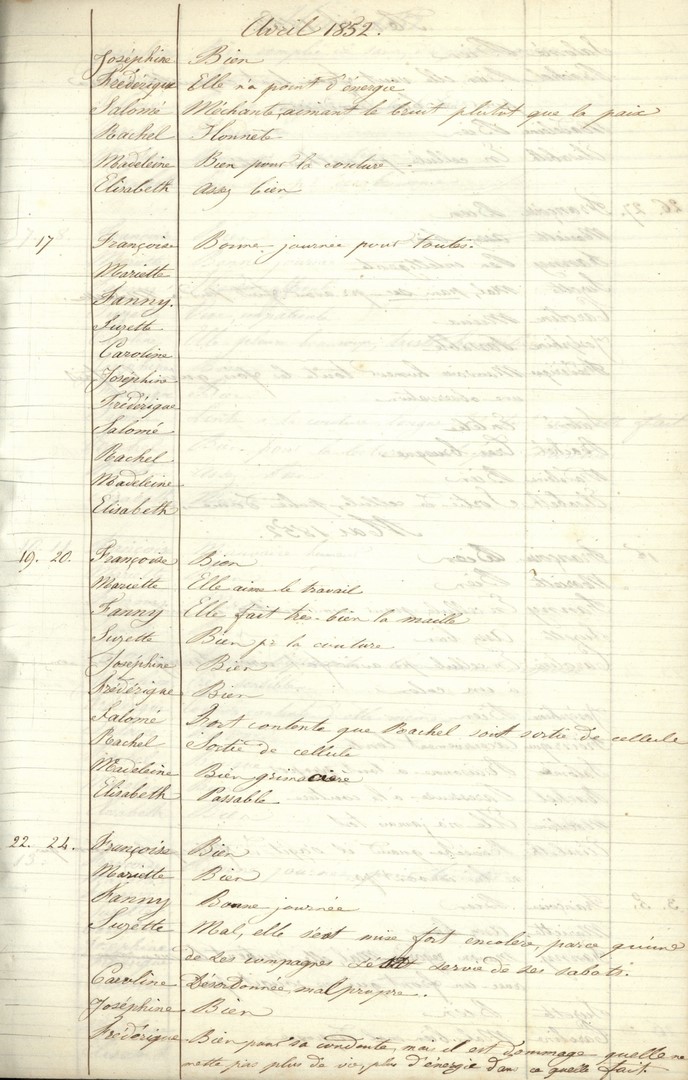 Avril 1852.
Joséphine Bien
Frédérique Elle n'a point d'énergie
Salomé Méchante, aimant le bruit plutôt que la paix
Rachel Honnete
Madeleine Bien pour la couture.
Elisabeth assez bien
17 Françoise Bonne journée pour toutes.
Mariette
Fanny.
Suzette
Caroline
Joséphine
Frédérique
Salomé
Rachel
Madeleine
Elisabeth
19. 20. Françoise Bien
Mariette Elle aime le travail
Fanny Elle fait très-bien la maille
Suzette Bien pr la couture
Joséphine Bien
Frédérique Bien
Salomé Fort contente que Rachel soit sortie de cellule
Rachel Sortie de cellule
Madeleine Bien grimacière
Elisabeth Passable
22. 24. Françoise Bien
Mariette Bien
Fanny Bonne journée
Suzette Mal, elle s'est mise fort encolère, parce qu'une
de ses compagnes s'est servie de ses sabots.
Caroline Désordonnée, mal propre.
Joséphine Bien
Frédérique Bien pour sa conduite, mai il est dommage quelle ne
mette pas plus de vie, plus d'énergie dans ce quelle fait.